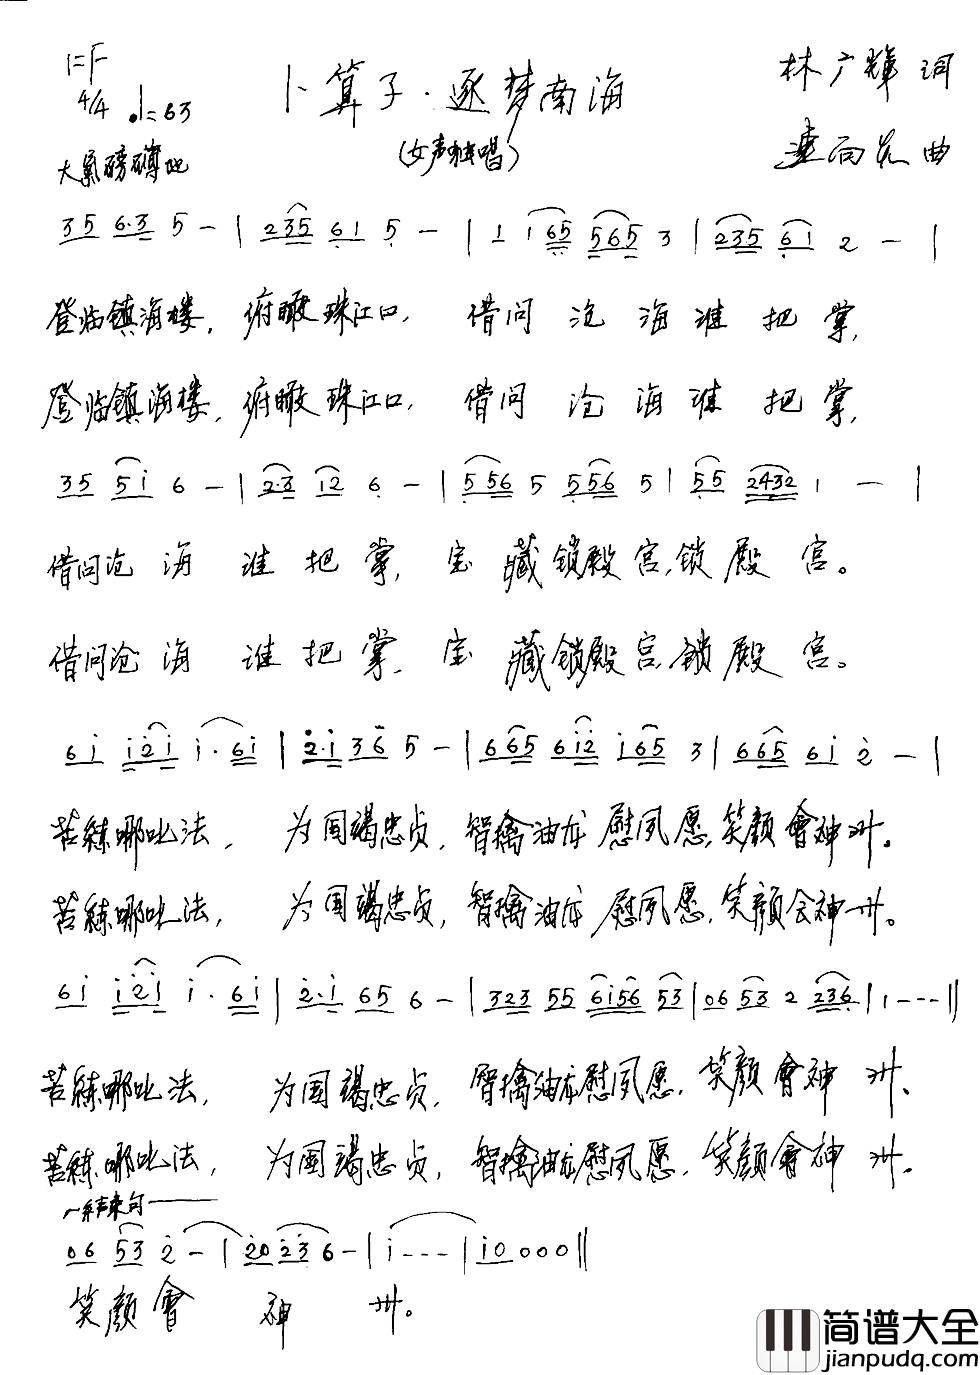 1=F
4/4 ♩=63
卜算子·逐梦南海
(女声独唱)
林广辉 词
曲
大气磅礴地
35 6·3 5 - | 235 61 5 - | 1 165 565 3 | 235 61 2 - |
登临镇海楼，俯瞰珠江口，借问沧海谁把掌，
登临镇海楼，俯瞰珠江口，借问沧海谁把掌，
35 51 6 - | 2·3 12 6 - | 556 5 556 5 | 55 2432 1 - |
借问沧海谁把掌，宝藏锁殿宫，锁殿宫。
借问沧海谁把掌，宝藏锁殿宫，锁殿宫。
61 121 1·61 | 2·1 36 5 - | 665 612 165 3 | 665 61 2 - |
苦练哪吒法，为国竭忠贞，智擒油龙慰夙愿，笑颜會神州。
苦练哪吒法，为国竭忠贞，智擒油龙慰夙愿，笑颜会神州。
61 121 1·61 | 2·1 65 6 - | 323 55 6156 53 | 06 53 2 236 | 1 - - - ||
苦练哪吒法，为国竭忠贞，智擒油龙慰夙愿，笑颜會神州、
苦练哪吒法，为国竭忠贞，智擒油龙慰夙愿，笑颜會神州。
结束句
06 53 2 - | 20 23 6 - | 1 - - - | 10 0 0 0 ||
笑颜會神州。
简谱大全
jianpudq.com